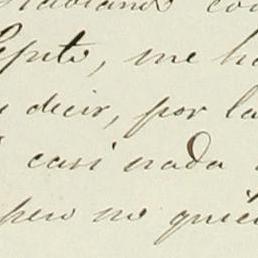 Hablando con
Pepito, me ha
decir, por la
casi nada
pero no quie